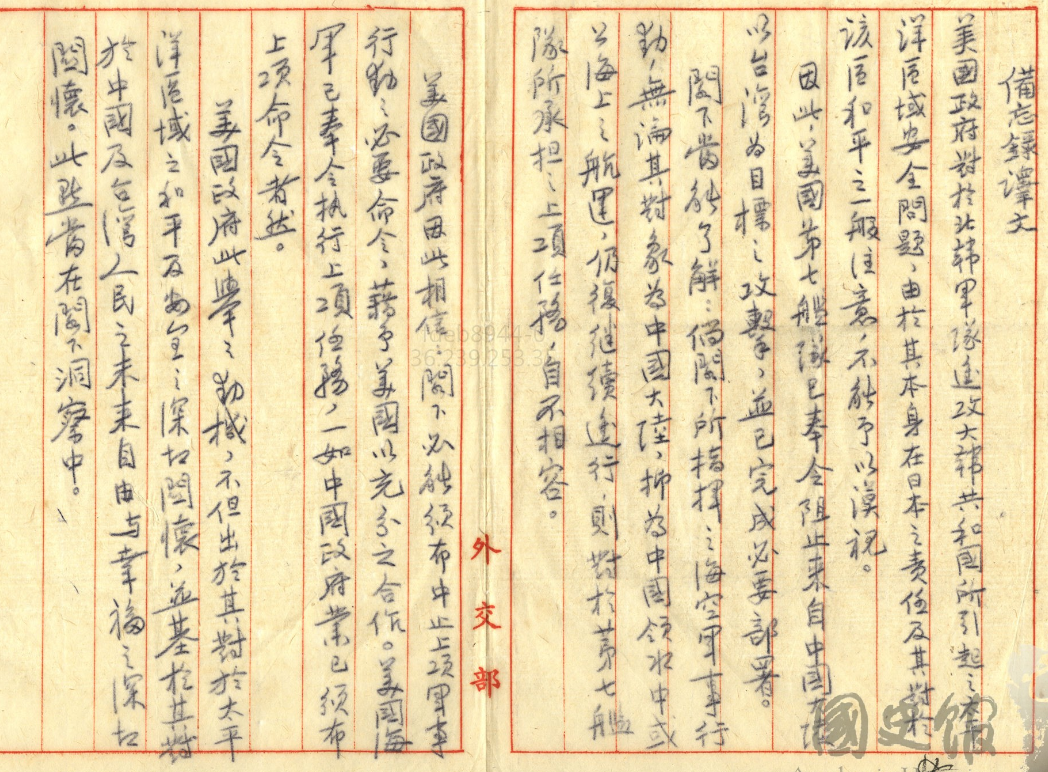 備忘錄譯文
美國政府對於北韓軍隊進攻大韓共和國所引起之太平
洋區域安全問題，由於其本身在日本之責任及其對於
該區和平之一般注意，不能予以漠視。
因此，美國第七艦隊已奉令阻止來自中國大陸
以台灣為目標之攻擊，並已完成必要部署。
閣下當能了解：倘閣下所指揮之海空軍事行
動，無論其對象為中國大陸，抑為中國領水中或
公海上之航運，仍復繼續進行，則對於第七艦
隊所承担之上項任務，自不相容。
美國政府因此相信：閣下必能頒布中止上項軍事
行動之必要命令，藉予美國以充分之合作。美國海
軍已奉令執行上項任務，一如中國政府業已頒布
上項命令者然。
美國政府此舉之動機，不但出於其對於太平
洋區域之和平及安全之深切關懷，並基於其對
於中國及台灣人民之未來自由与幸福之深切
關懷。此點當在閣下洞察中。
外交部
36.239.253.3
國史館